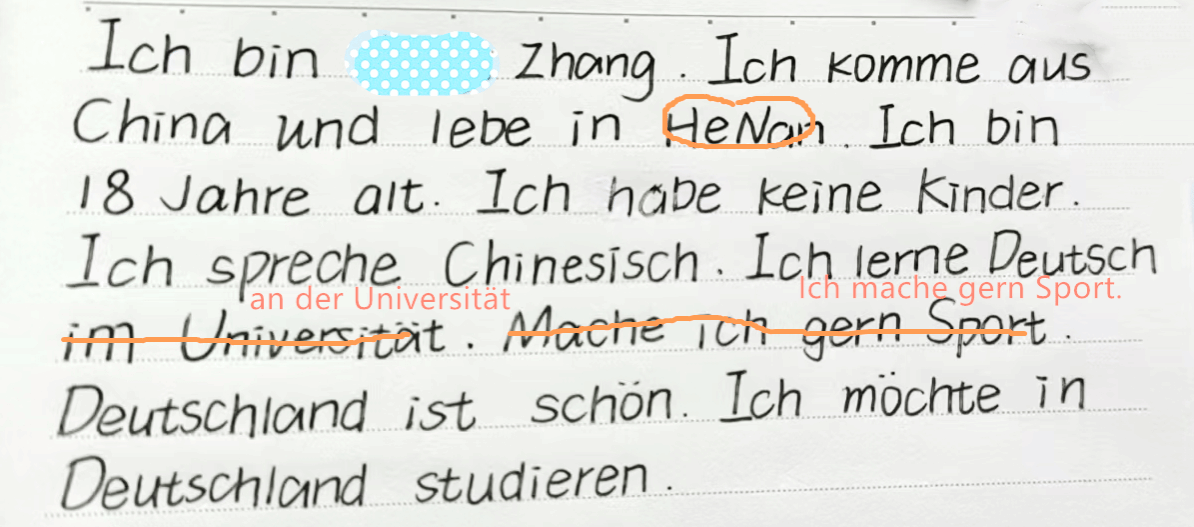 Ich bin Zhang. Ich komme aus
China und lebe in HeNan. Ich bin
18 Jahre alt. Ich habe keine Kinder.
Ich spreche Chinesisch. Ich lerne Deutsch
an der Universität Ich mache gern Sport.
im Universität. Mache ich gern Sport.
Deutschland ist schön. Ich möchte in
Deutschland studieren.